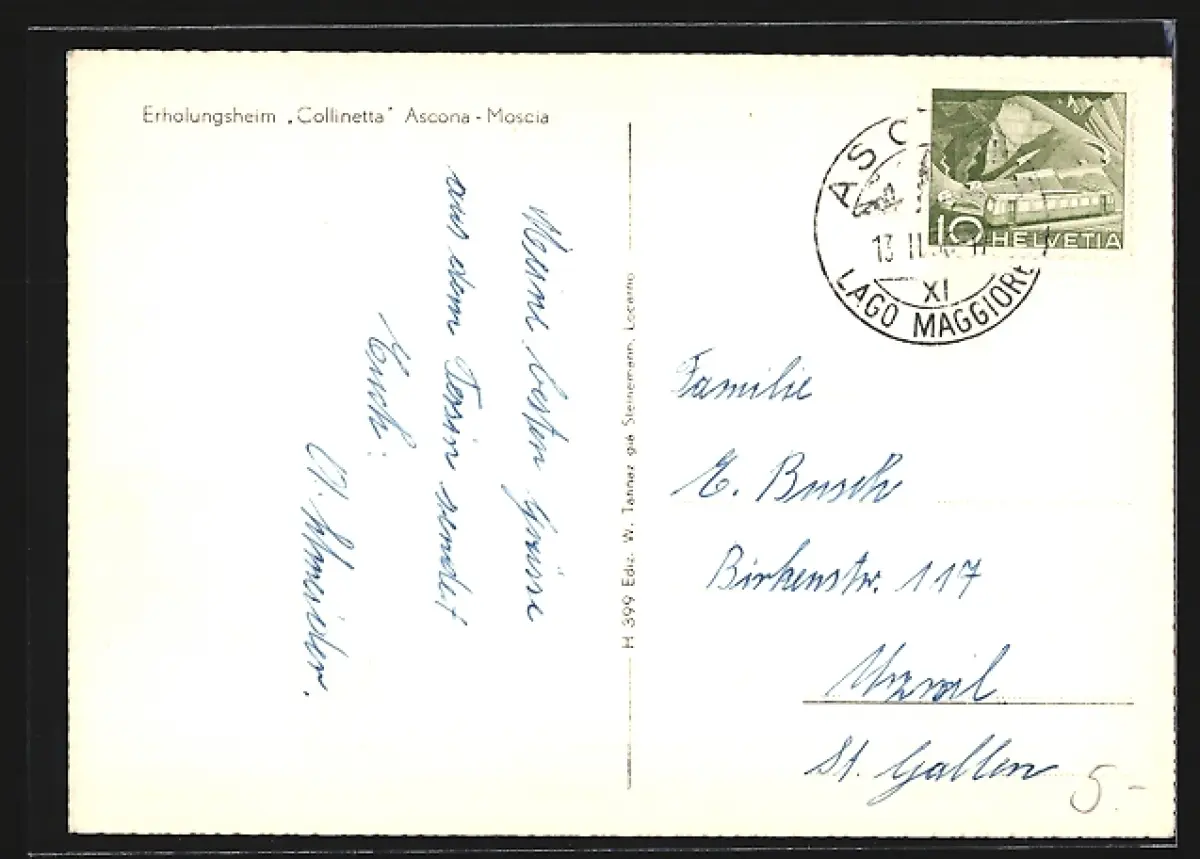 Erholungsheim „Collinetta" Ascona - Moscia
Meine besten Grüsse
aus dem Tessin sendet
Euch:
H 399 Ediz. W. Tannaz già Steinemann, Locarno
ASC
13 II
XI
LAGO MAGGIORE
10 HELVETIA
Familie
E. Busch
Birkenstr. 117
Uzwil
St. Gallen
5.-